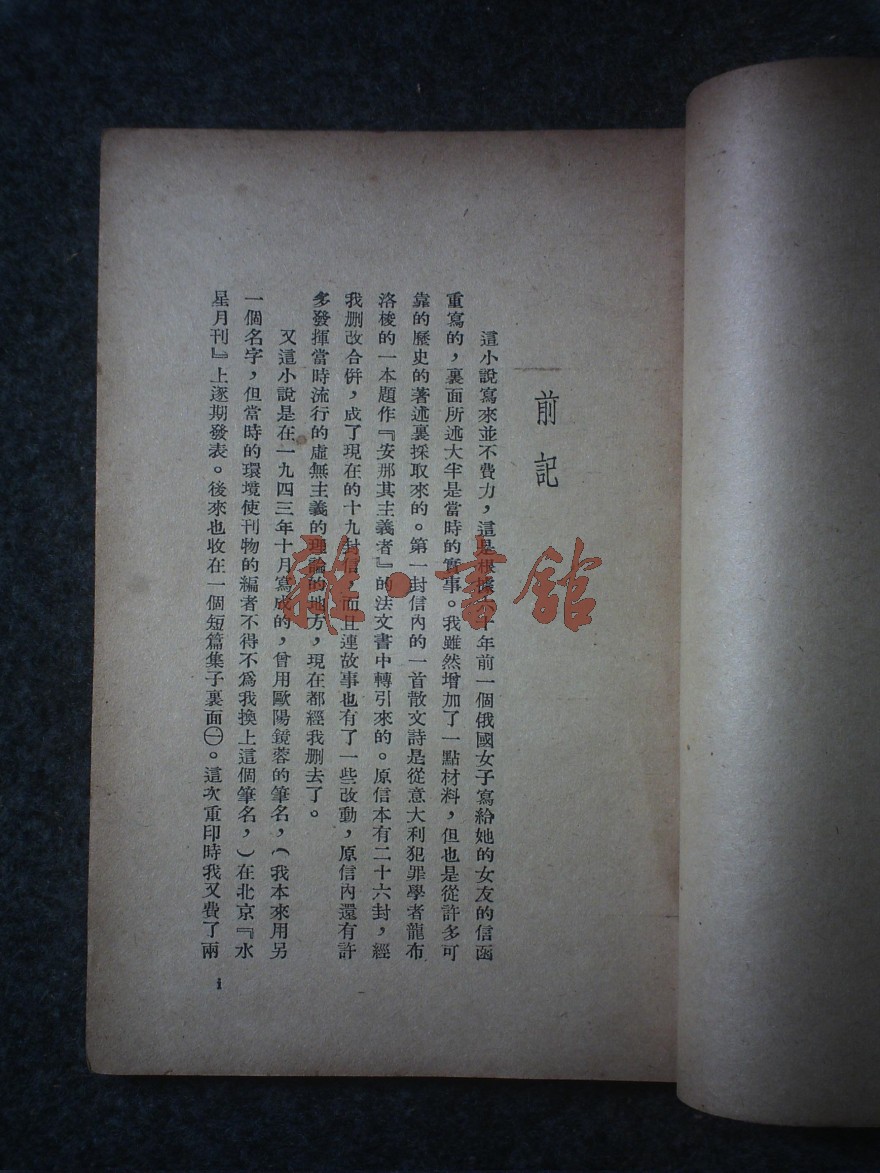 前記
這小說寫來並不費力，這是根據十年前一個俄國女子寫給她的女友的信函
重寫的，裏面所述大半是當時的實事。我雖然增加了一點材料，但也是從許多可
靠的歷史的著述裏採取來的。第一封信內的一首散文詩是從意大利犯罪學者龍布
洛梭的一本題作『安那其主義者』的法文書中轉引來的。原信本有二十六封，經
我删改合併，成了現在的十九封信，而且連故事也有了一些改動，原信內還有許
多發揮當時流行的虛無主義的理論的地方，現在都經我删去了。
又這小說是在一九四三年十月寫成的，曾用歐陽鏡蓉的筆名，（我本來用另
一個名字，但當時的環境使刊物的編者不得不爲我換上這個筆名，）在北京『水
星月刊』上逐期發表。後來也收在一個短篇集子裏面㊀。這次重印時我又費了兩
i
雜·書舘